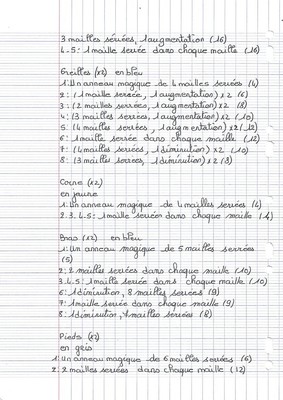 3 mailles serrées, 1 augmentation (16)
4-5: 1 maille serrée dans chaque maille (16)
Oreilles (x2) en bleu
1: Un anneau magique de 4 mailles serrées (4)
2: (1 maille serrée, 1 augmentation) x2 (6)
3: (2 mailles serrées, 1 augmentation) x2 (8)
4: (3 mailles serrées, 1 augmentation) x2 (10)
5: (4 mailles serrées, 1 augmentation) x2 (12)
6: 1 maille serrée dans chaque maille (12)
7: (4 mailles serrées, 1 diminution) x2 (10)
8: (3 mailles serrées, 1 diminution) x2 (8)
Corne (x2)
en jaune
1: Un anneau magique de 4 mailles serrées (4)
2.3.4.5: 1 maille serrée dans chaque maille (4)
Bras (x2) en bleu
1: Un anneau magique de 5 mailles serrées
(5)
2: 2 mailles serrées dans chaque maille (10)
3.4.5: 1 maille serrée dans chaque maille (10)
6: 1 diminution, 8 mailles serrées (9)
7: 1 maille serrée dans chaque maille (9)
8: 1 diminution, 7 mailles serrées (8)
Pieds (x2)
en gris
1: Un anneau magique de 6 mailles serrées (6)
2: 2 mailles serrées dans chaque maille (12)